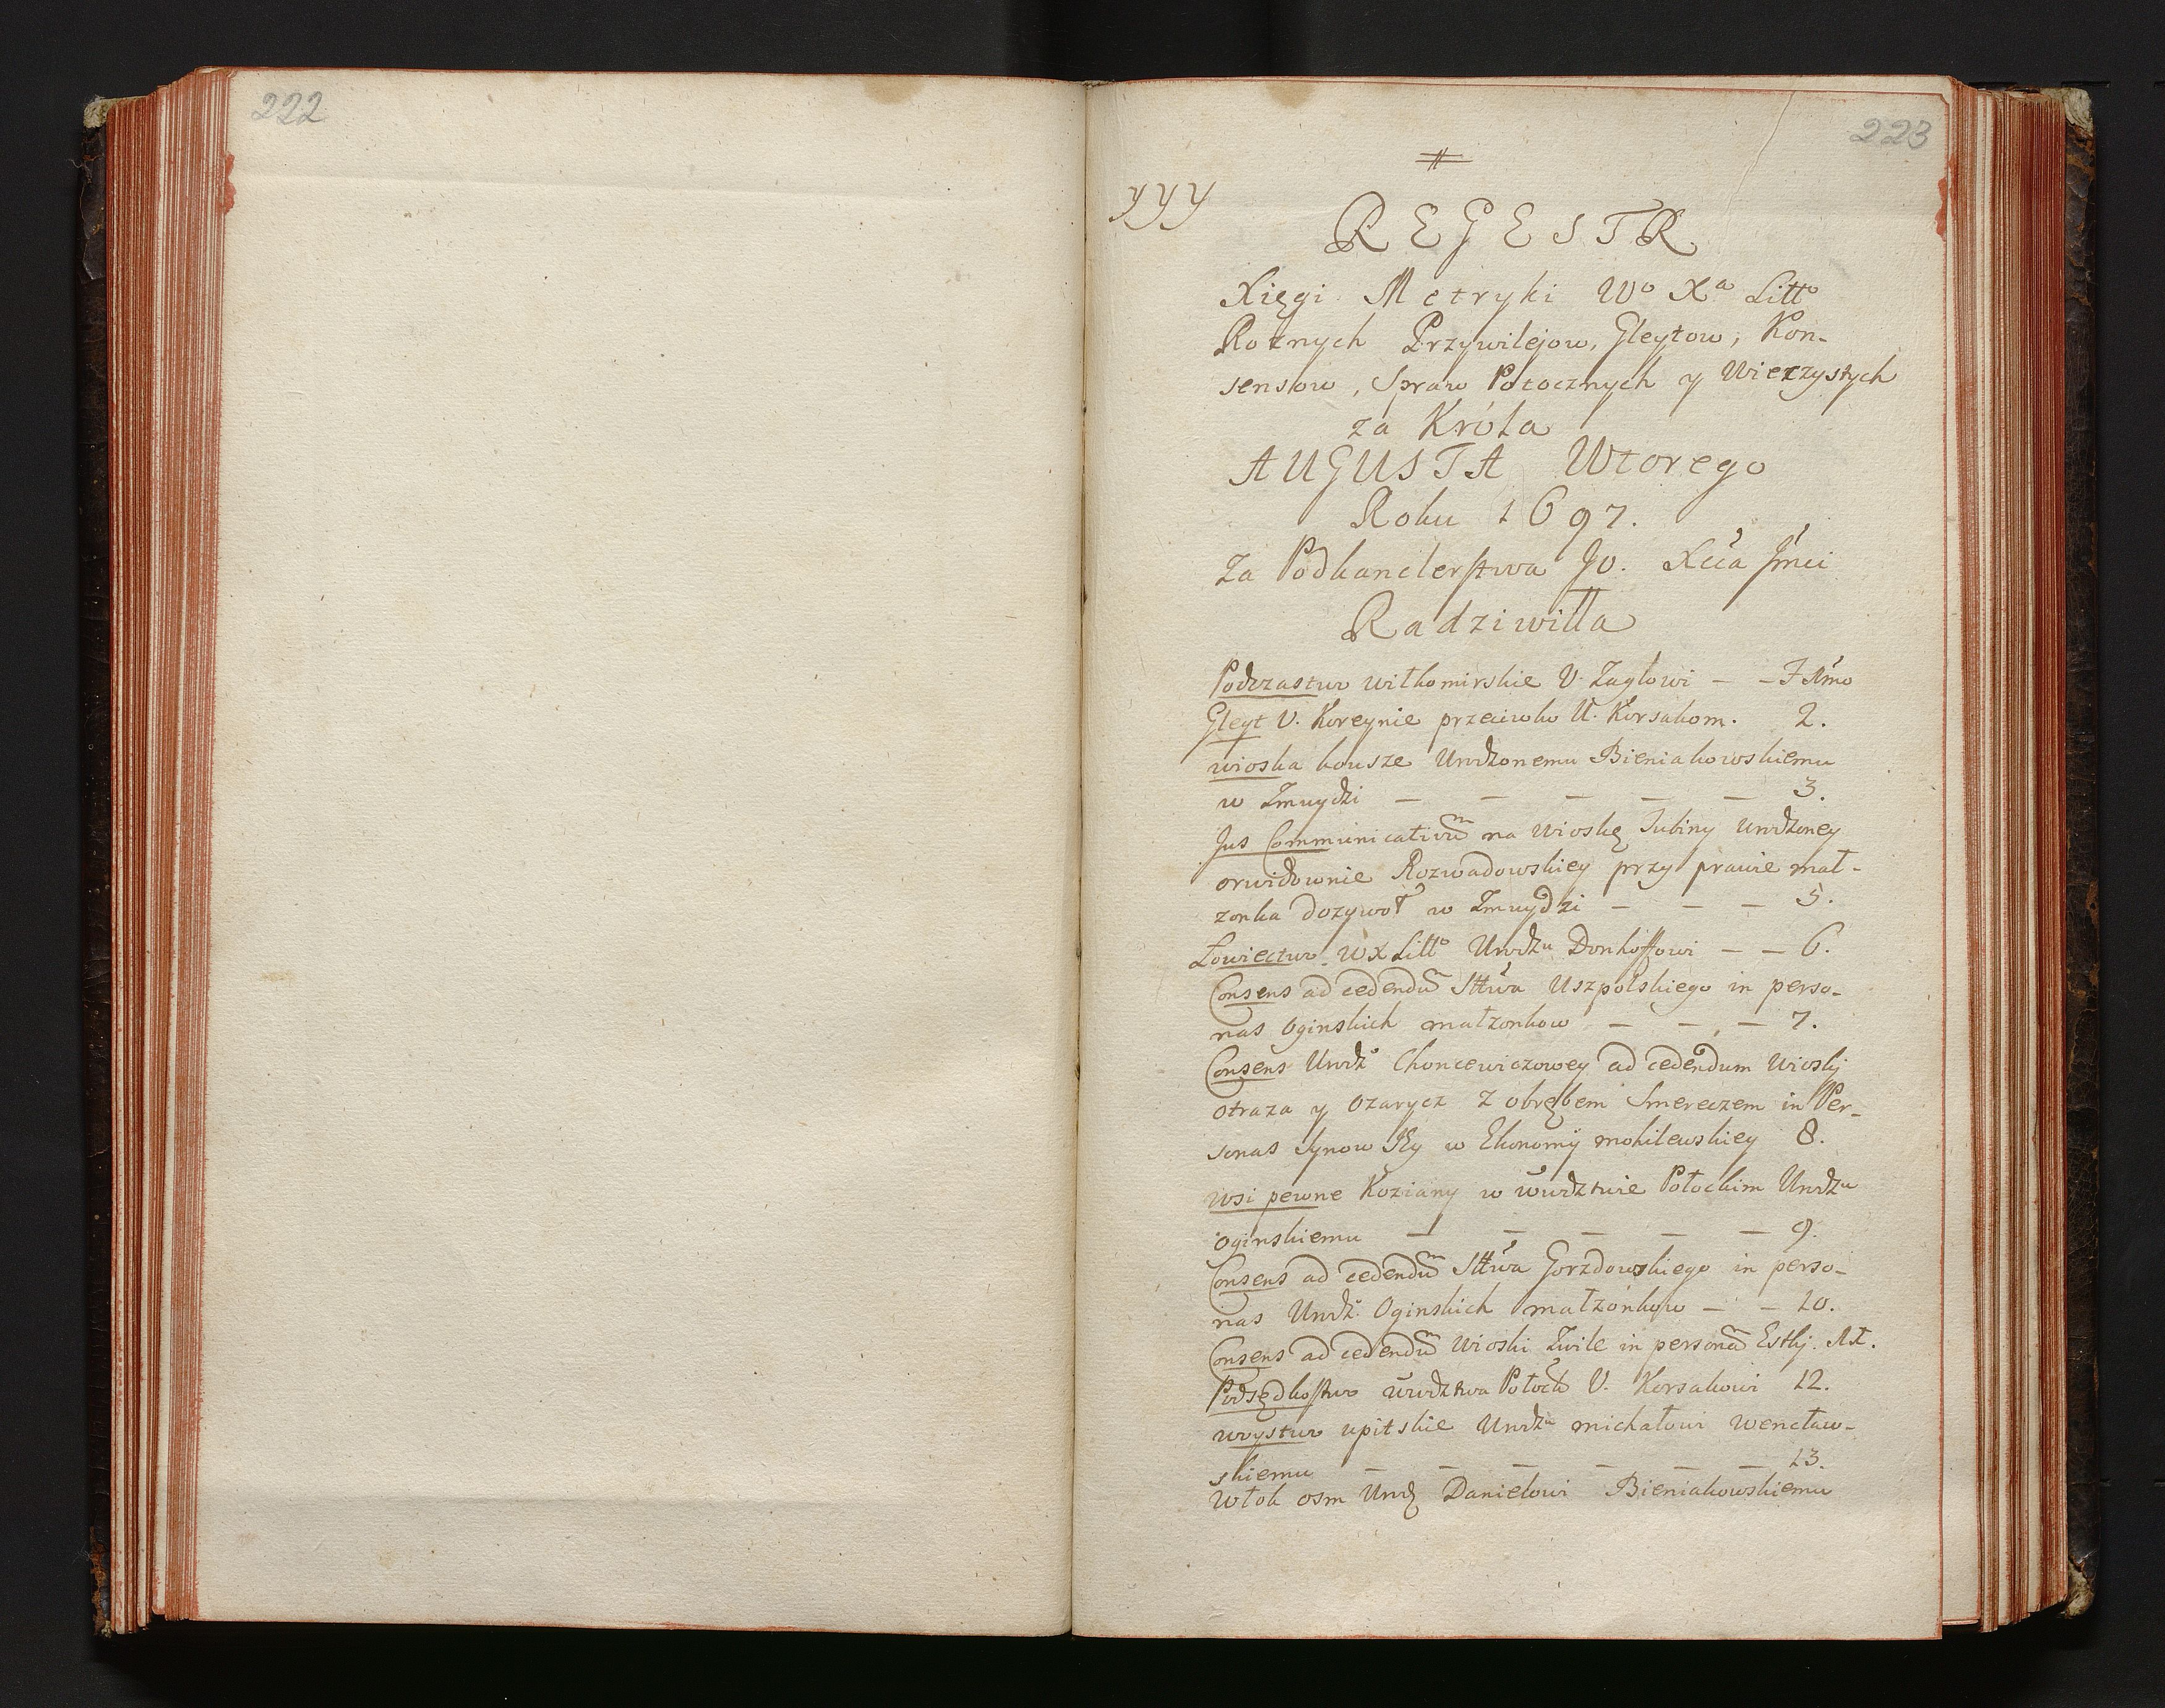 222
223
yyy
REGESTR
Xięgi Metryki Wo Xa Litto
Rożnych Przywilejow, Gleytow, Kon-
sensow, Spraw Potocznych y Wieczystych
za Króla
AUGUSTA Wtorego
Roku 1697.
Za Podkanclerstwa Jo. Xcia Jmci
Radziwiłła
Podczastwo wiłkomirskie U. Zaglowi – –
Gleyt U. Koreynie przeciwko U. Korsakom. 2.
wioska kousze Urodzonemu Bieniakowskiemu
w Zmuydzi – – – – – 3.
Jus Communicativum na wioskę Tubiny urodzoney
orwidownie Rozwadowskiey przy prawie mał-
zonka dozywot w Zmuydzi – – – 5.
Łowiectwo WX Litto Urodzu Donhoffowi – – 6.
Consens ad cedendum Sttwa Uszpolskiego in perso-
nas Oginskich małzonkow – – – 7.
Consens Urodz Choncewiczowey ad cedendum wioski
otraza y Ozarycz z obrębem Smereczem in Per-
sonas Synow Jey w Ekonomij mohilewskiey 8.
wsi pewne Koziany w wwdztwie Połockim Urodzu
Oginskiemu – – – – – 9.
Consens ad cedendum Sttwa Gorzdowskiego in perso-
nas Urodz. Oginskich małzonkow – – 10.
Consens ad cedendum wioski Zwile in personam Estky.
Podsędkostwo wwdztwa Połock U. Korsakowi 12.
woystwo upitskie Urodzu michałowi wencław-
skiemu – – – – – – 13.
Włok osm Urodz Danielowi Bieniakowskiemu